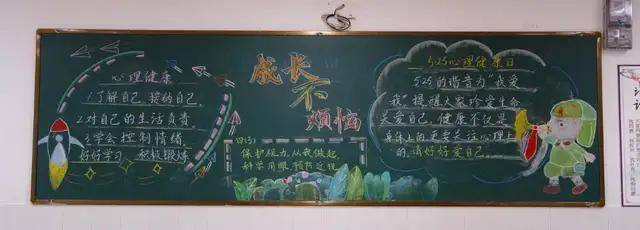 心理健康
1.了解自己,接纳自己.
2.对自己的生活负责
3.学会控制情绪.
好好学习 积极锻炼
成长
不
烦恼
四(3)
保护视力,从我做起.
科学用眼,预防近视
525心理健康日
525的谐音为“我爱
我”,提醒大家珍爱生命
关爱自己,健康不仅是
身体上的更要关注心理上
的,请好好爱自己.